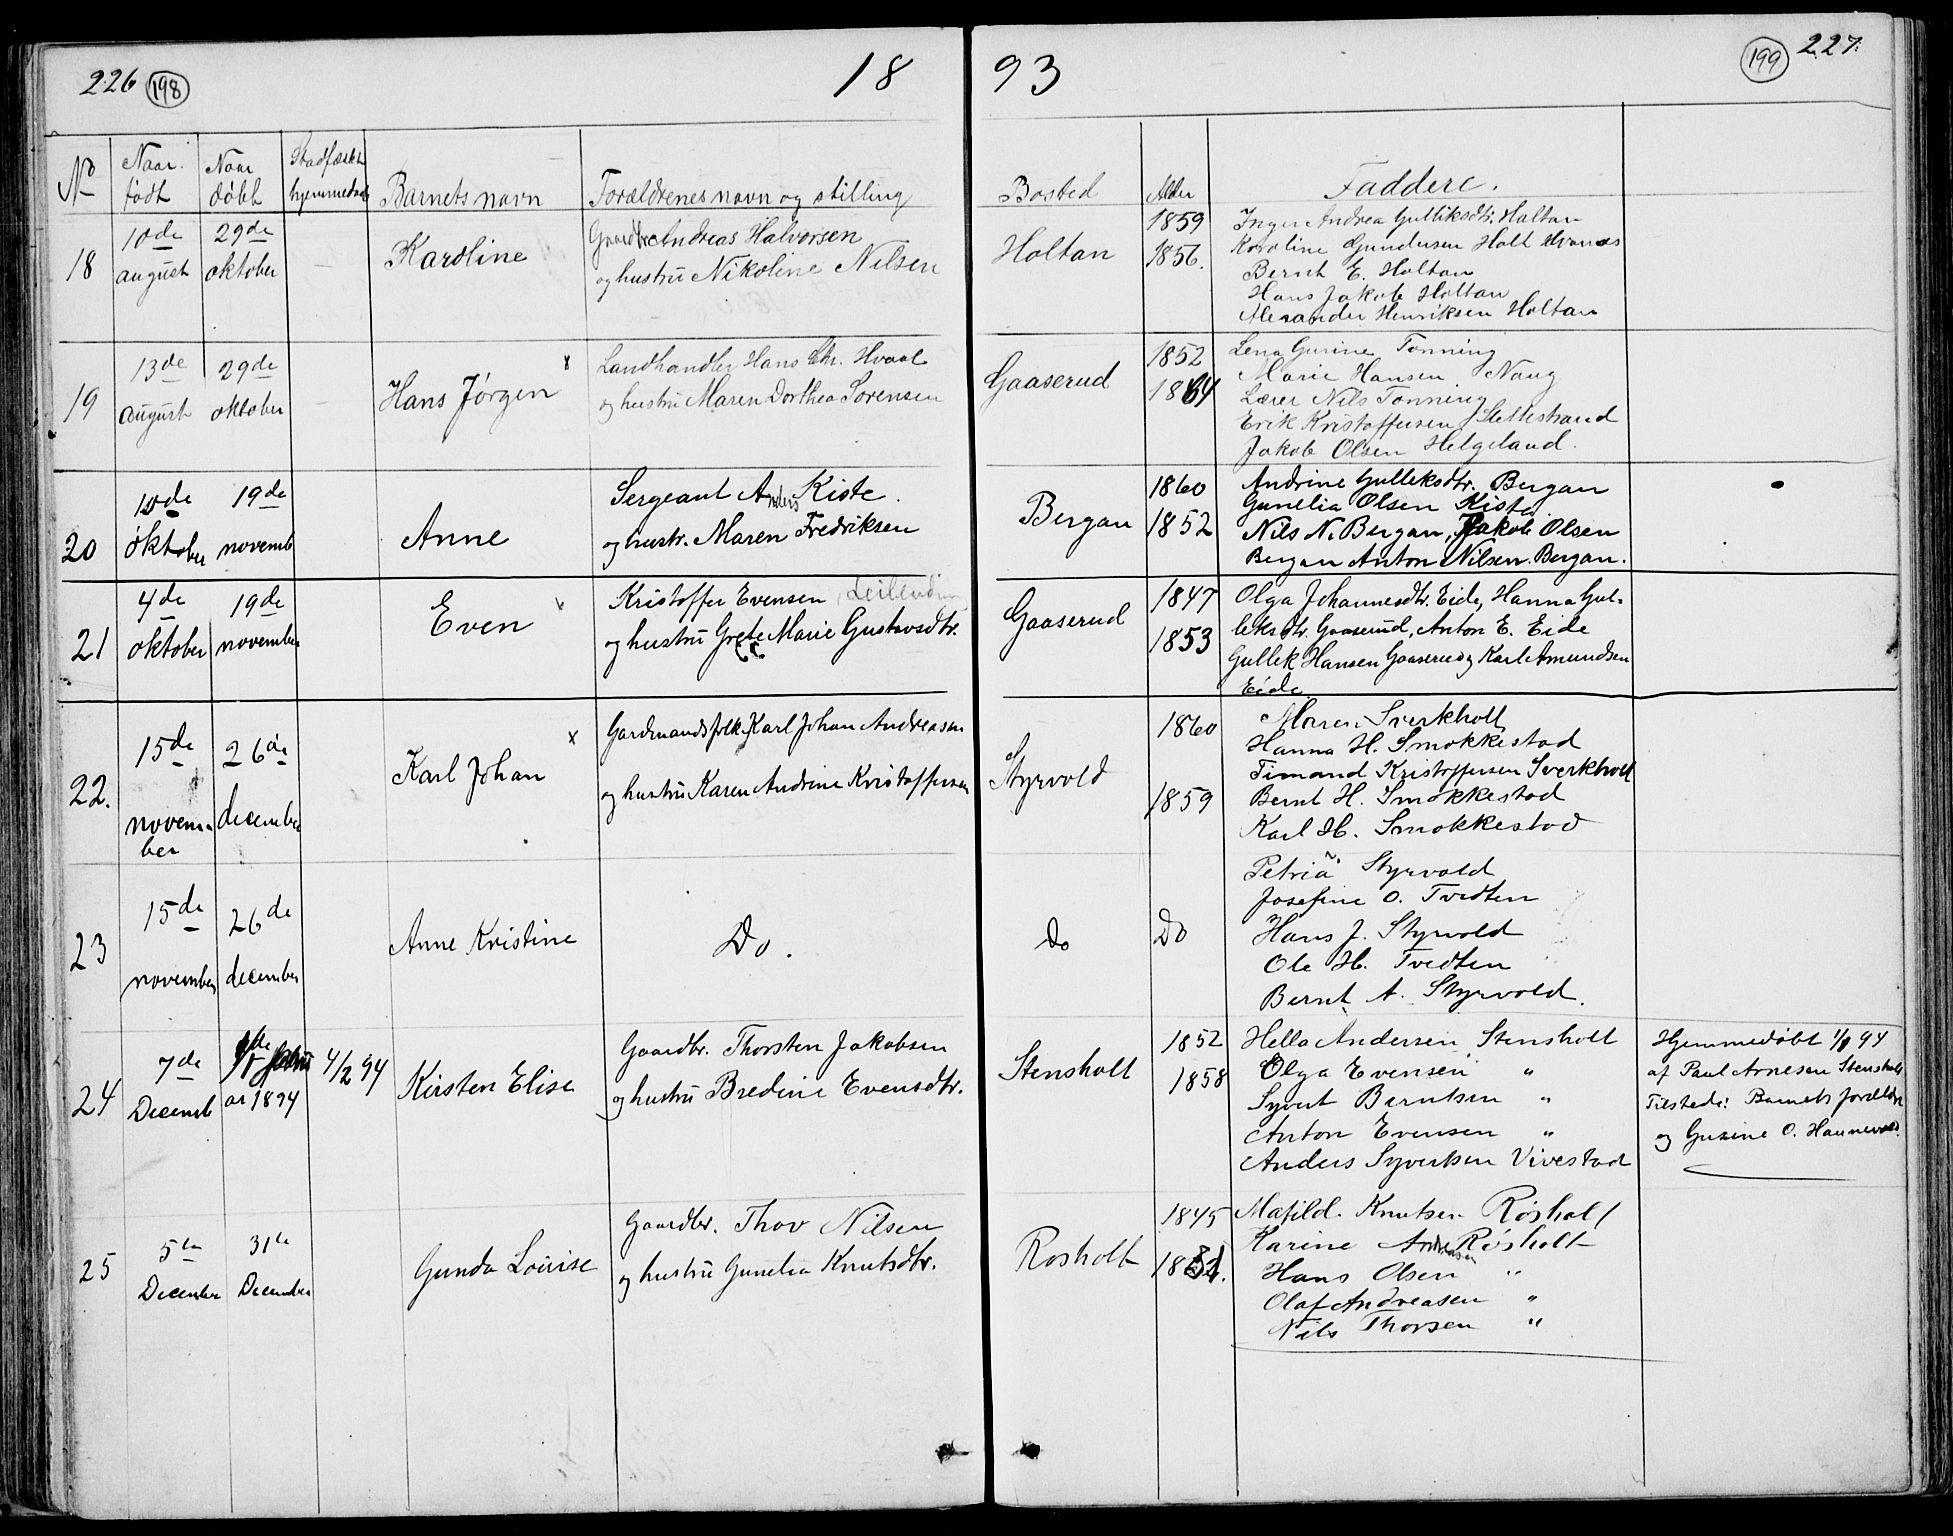 226 198
18 93
199 227.
No
Naar födt
Naar döbt
Stadfæstet hjemmedaab
Barnets navn
Forældrenes navn og stilling
Bosted
Alder
Faddere.
18
10de august
29de oktober
—
Karoline
Gaardbr. Andreas Halvorsen
og hustru Nikoline Nilsen
Holtan
1859
1856.
Inger Andrea Gulliksdtr. Holtan
Karoline Gundersen Holt
Bernt E. Holtan
Hans Jakob Holtan
Alexander Henriksen Holtan
19
13de august
29de oktober
—
Hans Jørgen x
Landhandler Hans Chr. Hvaal
og hustru Maren Dorthea Sørensen
Gaaserud
1852
1864
Lena Gurine Tonning
Marie Hansen Naug
Lærer Nils Tonning
Erik Kristoffersen Slettestrand
Jakob Olsen Helgeland.
20
10de oktober
19de novemb
Anne
Sergeant Anders Kiste.
og hustr. Maren Fredriksen
Bergan
1860
1852
Andrine Gulleksdtr. Bergan
Gunelia Olsen Kiste
Nils N. Bergan, Jakob Olsen
Bergan Anton Nilsen Bergan.
21
4de oktober
19de november
Even x
Kristoffer Evensen, Leilending
og hustru Grete Marie Gustavsdtr.
Gaaserud
1847
1853
Olga Johannesdtr. Eide, Hanna Gul-
leksdtr. Gaaserud, Anton E. Eide
Gullek Hansen Gaaserud og Karl Amundsen
Eide
22.
15de novem-
ber
26de december
Karl Johan x
Gardmandsfolk Karl Johan Andreasen
og hustru Karen Andrine Kristoffersen
Styrvold
1860
1859
Maren Sverkholt
Hanna H. Smokkestad
Timand Kristoffersen Sverkholt
Bernt H. Smokkestad
Karl H. Smokkestad
23
15de november
26de december
Anne Kristine
Do.
do
Do
Petria Styrvold
Josefine O. Tvedten
Hans J. Styrvold
Ole H. Tvedten
Bernt A. Styrvold.
24
7de Decemb
ar 1894
4/2 94
Kirsten Elise
Gaardbr. Thorsten Jakobsen
og hustru Bredine Evensdtr.
Stensholt
1852
1858
Hella Andersen Stensholt
Olga Evensen "
Syvert Berntsen "
Anton Evensen "
Anders Syvertsen Vivestad
Hjemmedøbt 1/1 94
af Paul Arnesen Stensholt
Tilstede: Barnets forældre
og Gusine O. Hannevold.
25
5te December
31te December
Gunda Louise
Gaardbr. Thov Nilsen
og hustru Gunelia Knutsdtr.
Rosholt
1845
Matild. Knutsen Røsholt
Karine Andreasen Røsholt
Hans Olsen "
Olaf Andreasen "
Nils Thorsen "